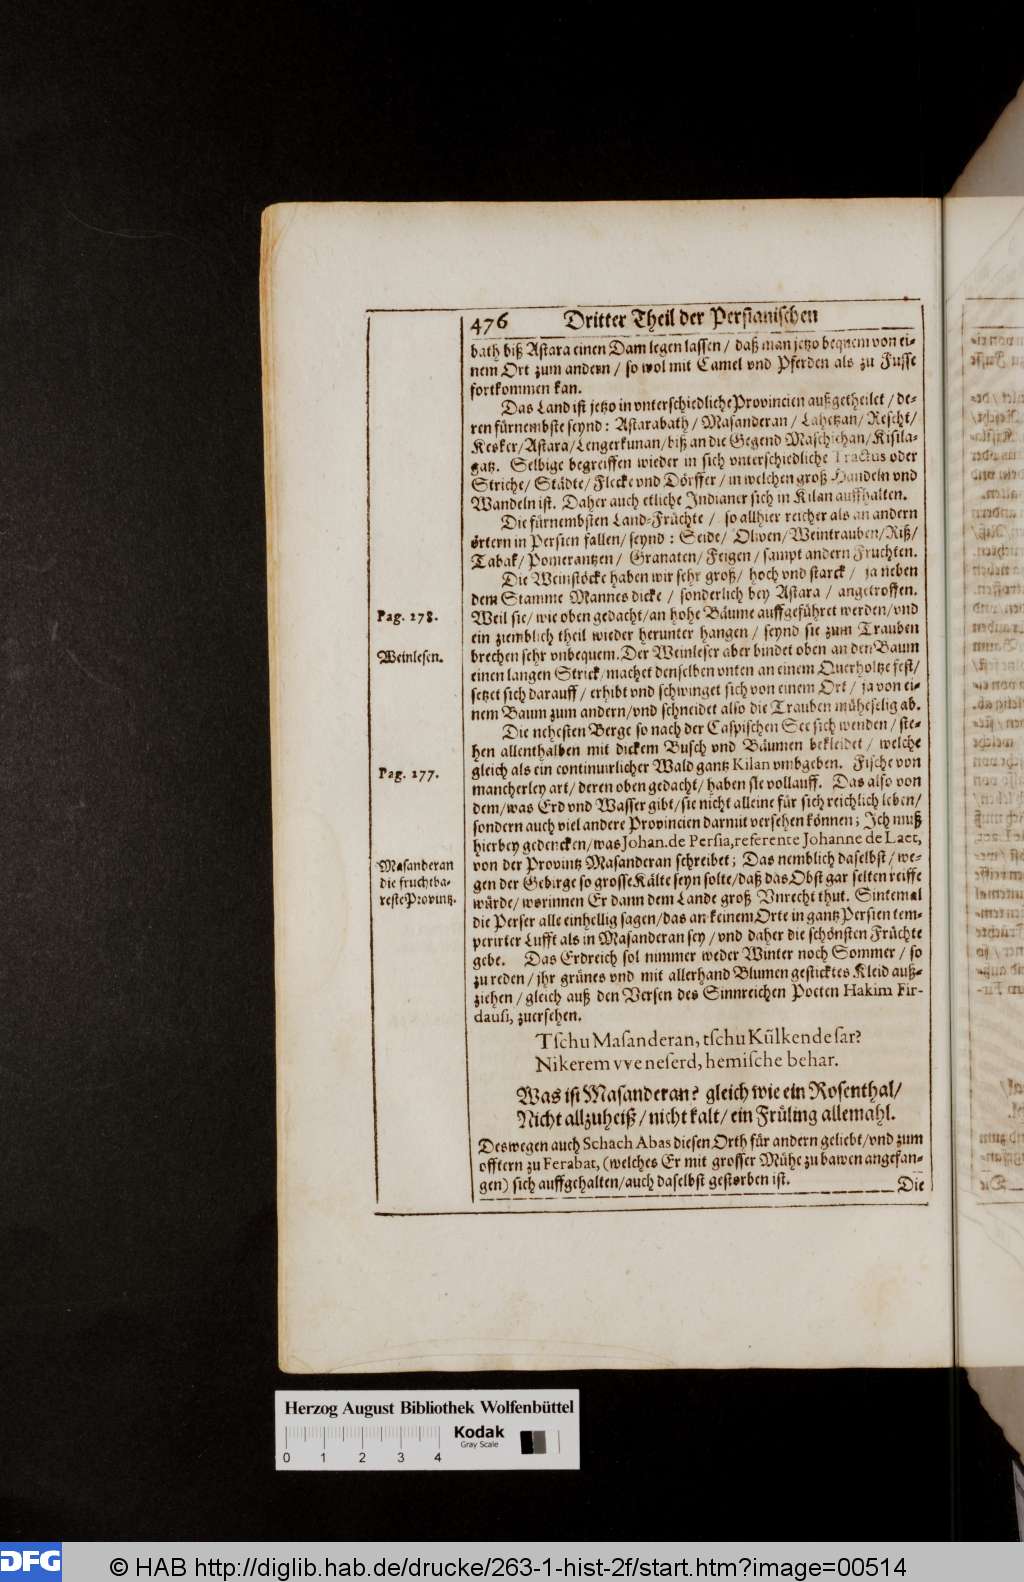 476 Dritter Theil der Persianischen
bath biß Astara einen Dam legen lassen / daß man jetzo bequem von ei-
nem Ort zum andern / so wol mit Camel vnd Pferden als zu Fusse
fortkommen kan.
Das Land ist jetzo in vnterschiedliche Provincien außgetheilet / de-
ren fürnembste seynd : Astarabath / Masanderan / Lahetzan / Rescht /
Kesker / Astara / Lengerkunan / biß an die Gegend Maschichan / Kisila-
gatz. Selbige begreiffen wieder in sich vnterschiedliche Tractus oder
Striche / Städte / Flecke vnd Dörffer / in welchen groß Handeln vnd
Wandeln ist. Daher auch etliche Indianer sich in Kilan auffhalten.
Die fürnembsten Land-Früchte / so allhier reicher als an andern
örtern in Persien fallen / seynd : Seide / Oliven / Weintrauben / Riß /
Tabak / Pomerantzen / Granaten / Feigen / sampt andern Fruchten.
Die Weinstöcke haben wir sehr groß / hoch vnd starck / ja neben
dem Stamme Mannes dicke / sonderlich bey Astara / angetroffen.
Pag. 178.
Weil sie / wie oben gedacht / an hohe Bäume auffgeführet werden / vnd
ein ziemblich theil wieder herunter hangen / seynd sie zum Trauben
Weinlesen.
brechen sehr vnbequem. Der Weinleser aber bindet oben an den Baum
einen langen Strick / machet denselben vnten an einem Querholtze fest /
setzet sich darauff / erhibt vnd schwinget sich von einem Ort / ja von ei-
nem Baum zum andern / vnd schneidet also die Trauben müheselig ab.
Die nehesten Berge so nach der Caspischen See sich wenden / ste-
hen allenthalben mit dickem Busch vnd Bäumen bekleidet / welche
Pag. 177.
gleich als ein continuirlicher Wald gantz Kilan vmbgeben. Fische von
mancherley art / deren oben gedacht / haben sie vollauff. Das also von
dem / was Erd vnd Wasser gibt / sie nicht alleine für sich reichlich leben /
sondern auch viel andere Provincien darmit versehen können ; Ich muß
hierbey gedencken / was Johan. de Persia, referente Johanne de Laet,
Masanderan
die fruchtba-
reste Provintz.
von der Provintz Masanderan schreibet ; Das nemblich daselbst / we-
gen der Gebirge so grosse Kälte seyn solte / daß das Obst gar selten reiffe
würde / worinnen Er dann dem Lande groß Vnrecht thut. Sintemal
die Perser alle einhellig sagen / das an keinem Orte in gantz Persien tem-
perirter Lufft als in Masanderan sey / vnd daher die schönsten Früchte
gebe. Das Erdreich sol nimmer weder Winter noch Sommer / so
zu reden / jhr grünes vnd mit allerhand Blumen gesticktes Kleid auß-
ziehen / gleich auß den Versen des Sinnreichen Poeten Hakim Fir-
dausi, zuersehen.
Tschu Masanderan, tschu Külkende sar?
Nikerem vve neserd, hemische behar.
Was ist Masanderan? gleich wie ein Rosenthal /
Nicht allzuheiß / nicht kalt / ein Früling allemahl.
Deswegen auch Schach Abas diesen Orth für andern geliebt / vnd zum
offtern zu Ferabat, (welches Er mit grosser Mühe zu bawen angefan-
gen) sich auffgehalten / auch daselbst gestorben ist.
Die
Herzog August Bibliothek Wolfenbüttel
Kodak
Gray Scale
0 1 2 3 4
DFG © HAB http://diglib.hab.de/drucke/263-1-hist-2f/start.htm?image=00514